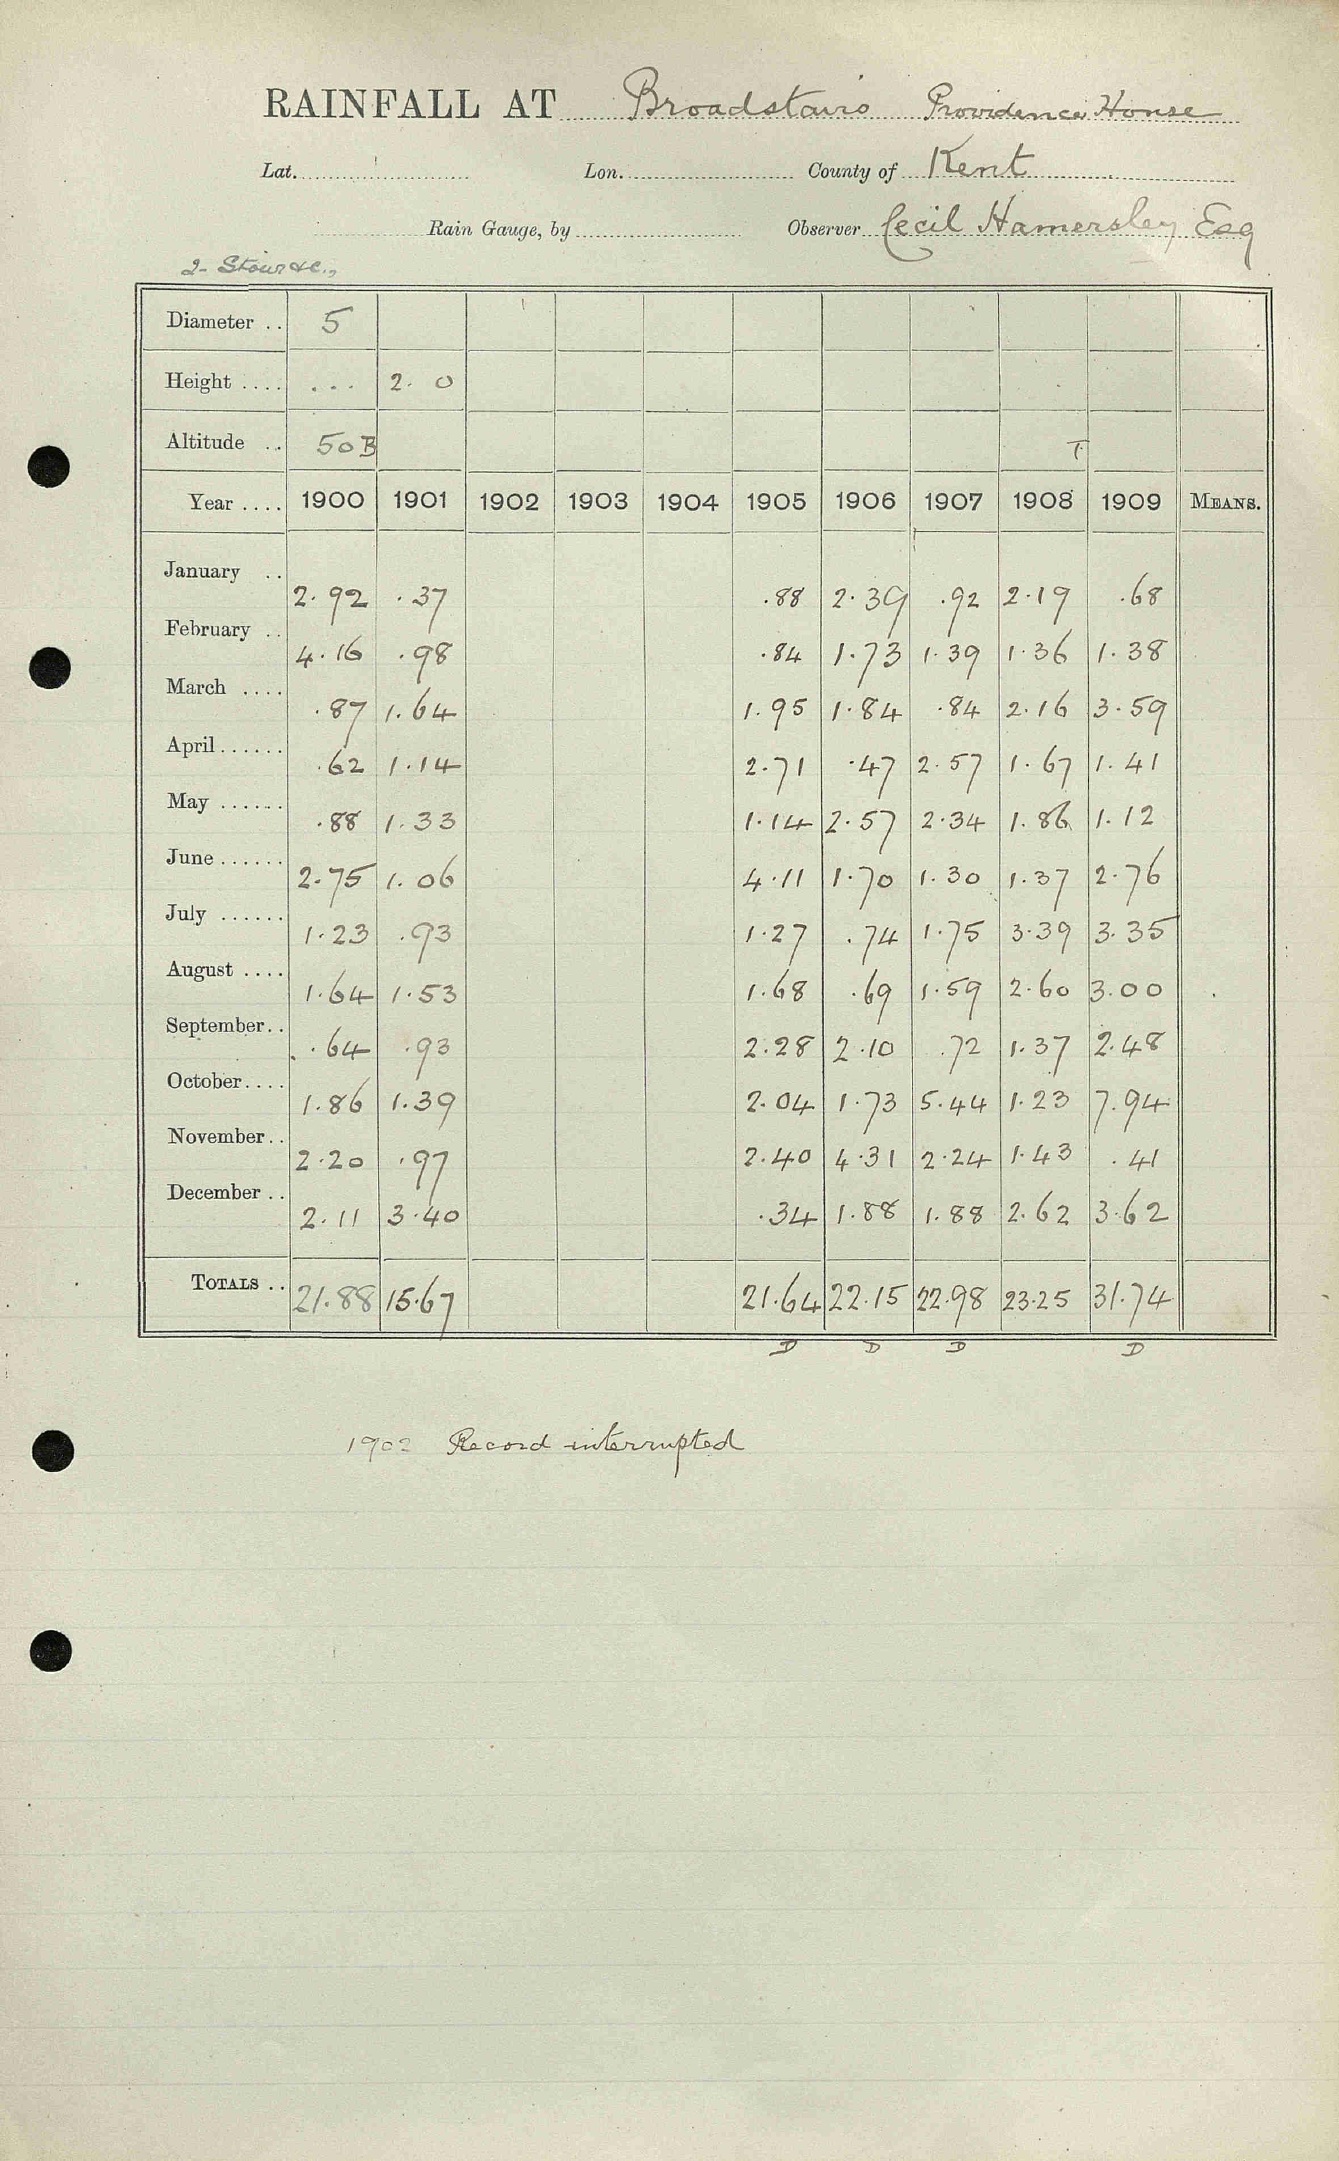 RAINFALL AT Broadstairs Providence House
Lat. Lon. County of Kent
Rain Gauge, by Observer Cecil Hamersley Esq
2- Stour &c.,
Diameter .. 5
Height .... ... 2. 0
Altitude .. 50 B T
Year .... 1900 1901 1902 1903 1904 1905 1906 1907 1908 1909 MEANS.
January .. 2.92 .37 .88 2.39 .92 2.19 .68
February .. 4.16 .98 .84 1.73 1.39 1.36 1.38
March .... .87 1.64 1.95 1.84 .84 2.16 3.59
April ...... .62 1.14 2.71 .47 2.57 1.67 1.41
May ...... .88 1.33 1.14 2.57 2.34 1.86 1.12
June ...... 2.75 1.06 4.11 1.70 1.30 1.37 2.76
July ...... 1.23 .93 1.27 .74 1.75 3.39 3.35
August .... 1.64 1.53 1.68 .69 1.59 2.60 3.00
September.. .64 .93 2.28 2.10 .72 1.37 2.48
October.... 1.86 1.39 2.04 1.73 5.44 1.23 7.94
November.. 2.20 .97 2.40 4.31 2.24 1.43 .41
December .. 2.11 3.40 .34 1.88 1.88 2.62 3.62
TOTALS .. 21.88 15.67 21.64 22.15 22.98 23.25 31.74
D D D D
1902 Record interrupted